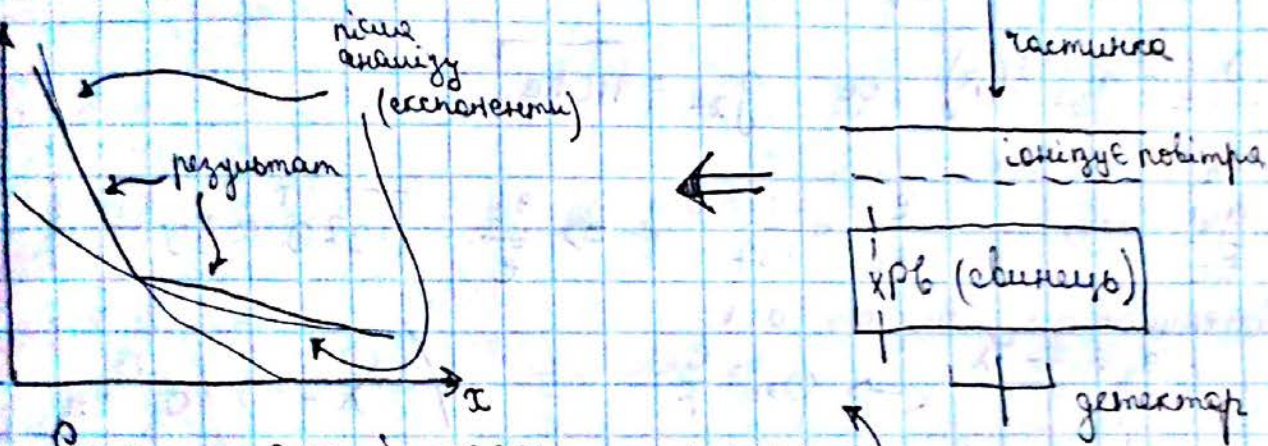 після
аналізу
(експоненти)
результат
x
частинка
іонізує повітря
x Pb (свинець)
детектор